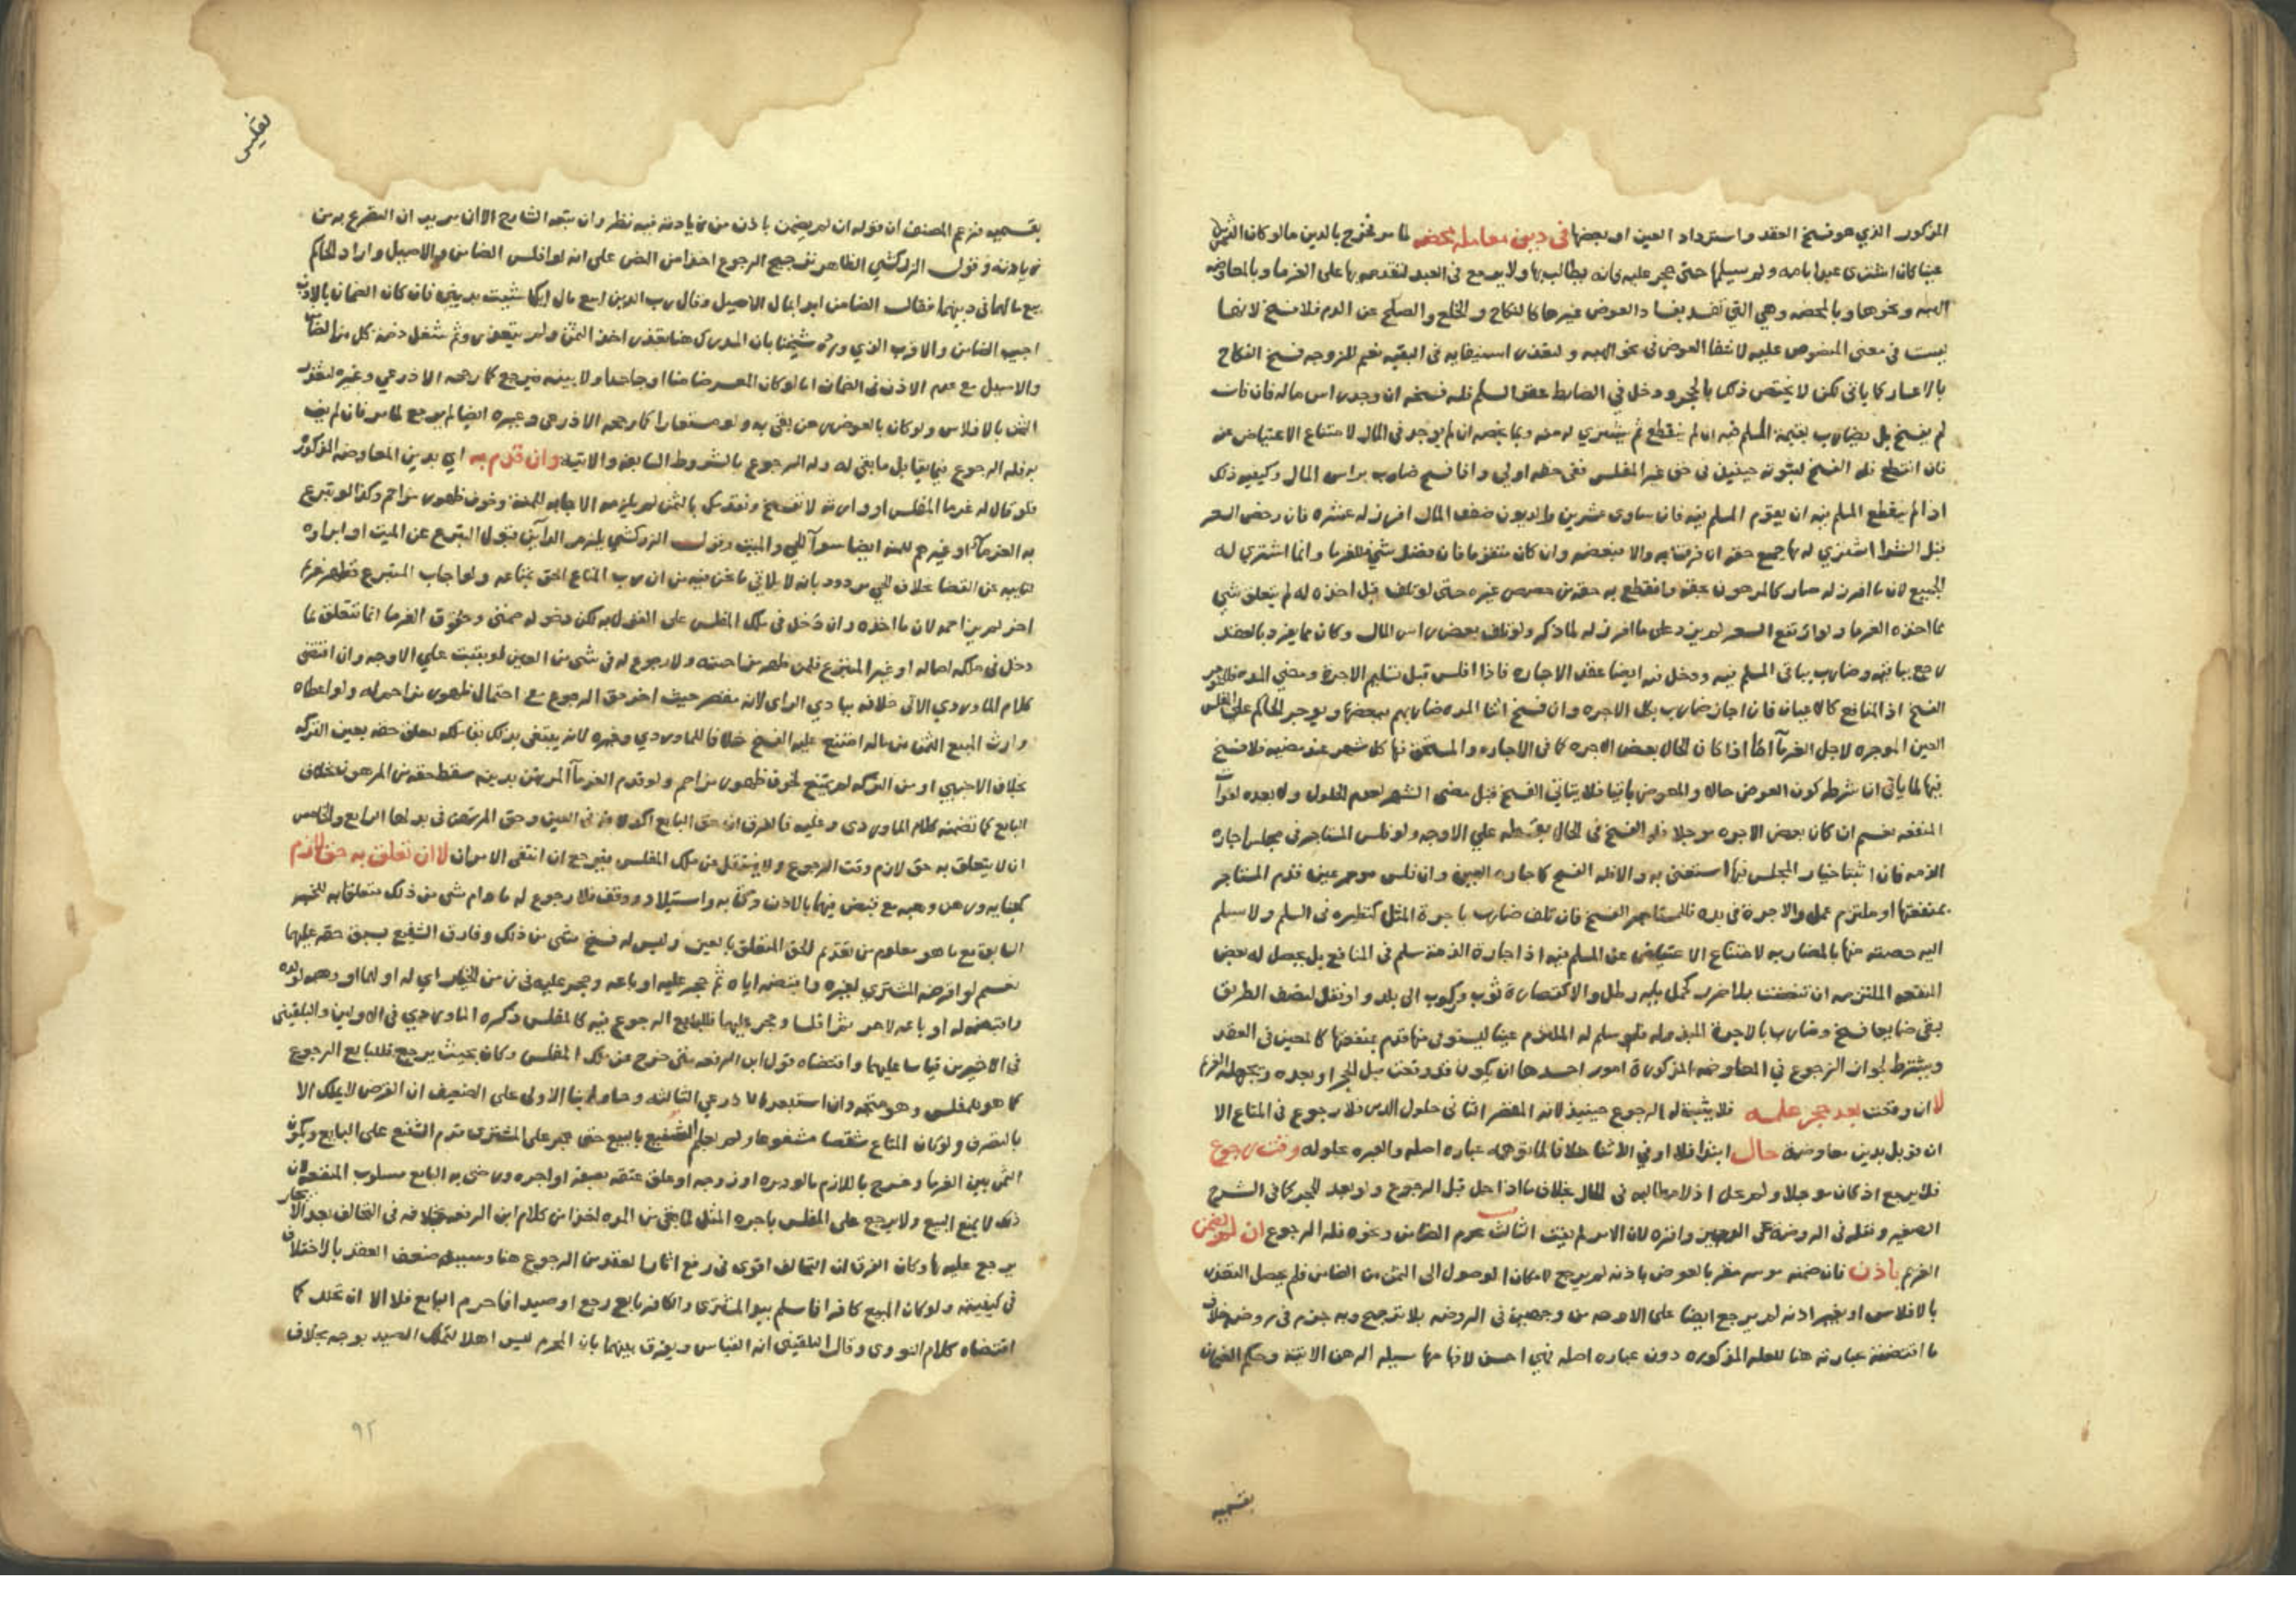 المذكور الذي هو فسخ العقد واسترداد العين او بعضها في دين معاملة محضه لما مر فخرج بالدين ما لو كان الثمن
عينا كان اشترى عبدا بامه ولم يسلمها حتى حجر عليه فانه يطالب بها ولا يرجع في العبد لتقدمه بها على الغرما وبالمعاوضه
الهبه ونحوها وبالمحضه وهي التي تفسد بفساد العوض غيرها كالنكاح والخلع والصلح عن الدم فلا فسخ لانها
ليست في معنى المنصوص عليه لانتفا العوض في نحو الهبه ولتعذر استيفايه في البقيه نعم للزوجه فسخ النكاح
بالاعسار كما ياتي لكن لا يختص ذلك بالحجر ودخل في الضابط عقد السلم فله فسخه ان وجد راس ماله فان فات
لم يفسخ بل يضارب بقيمة المسلم فيه ان لم ينقطع ثم يشتري له منه وبما يخصه ان لم يوجد في المال لامتناع الاعتياض عنه
فان انقطع فله الفسخ لثبوته حينئذ في حق غير المفلس ففي حقه اولى واذا فسخ ضارب براس المال وكيفيه ذلك
اذا لم ينقطع المسلم فيه ان يقوم المسلم فيه فان ساوى عشرين والديون ضعف المال افرز له عشره فان رخص السعر
قبل الشرا اشتري له بها جميع حقه ان وفت به والا فبعضه وان كان متقوما فان فضل شي فللغرما وانما اشتري له
الجميع لان ما افرز له صار كالمرهون بحقه وانقطع به حقه من حصص غيره حتى لو تلف قبل اخذه له لم يتعلق بشي
مما اخذه الغرما ولو ارتفع السعر لم يزد على ما افرز له لما ذكر ولو تلف بعض راس المال وكان مما يفرد بالعقد
رجع بباقيه وضارب بباقي المسلم فيه ودخل فيه ايضا عقد الاجاره فاذا افلس قبل تسليم الاجرة ومضي المده فللموجر
الفسخ اذ المنافع كالاعيان فان اجاز ضارب بكل الاجره وان فسخ اثنا المده ضاربهم ببعضها ويوجر الحاكم على المفلس
العين الموجره لاجل الغرمآ اما اذا كان الحال بعض الاجره كما في الاجاره والمستحق فيها كل شهر عند مضيه فلا فسخ
فيها لما ياتي ان شرطه كون العوض حالا والمعوض باقيا فلا يتاتى الفسخ قبل مضي الشهر لعدم الحلول ولا بعده لفوآت
المنفعه نعم ان كان بعض الاجره موجلا فله الفسخ في الحال بقسطه علي الاوجه ولو فلس المستاجر في مجلس اجاره
الذمه فان اثبتنا خيار المجلس فيها استغنى به والا فله الفسخ كاجاره العين وان فلس موجر عين قدم المستاجر
بمنفعتها او ملتزم عمل والاجرة في يده فللمستاجر الفسخ فان تلف ضارب باجرة المثل كنظيره في السلم ولا يسلم
اليه حصته منها بالمضاربه لامتناع الاعتياض عن المسلم فيه اذ اجارة الذمة سلم في المنافع بل يحصل له بعض
المنفعه الملتزمه ان تبعضت بلا ضرر كحمل مايه رطل والا كقصارة ثوب وركوب الى بلد ولو نقل لنصف الطريق
بقي ضايعا فسخ وضارب بالاجرة المبذوله فلو سلم له الملتزم عينا ليستوفي منها قدم بمنفعتها كالمعين في العقد
ويشترط لجواز الرجوع في المعاوضه المذكورة امور احدها ان يكون قد وقعت قبل الحجر او بعده وجهل الغريم
لا ان وقعت بعد حجر علمه فلا يثبت له الرجوع حينئذ لانه المقصر الثاني حلول الدين فلا رجوع في المتاع الا
ان قوبل بدين معاوضة حال ابتدا فلا او في الاثنا خلافا لما توهمه عباره اصله والعبره بحلوله وقت رجوع
فلا يرجع اذ كان موجلا ولم يحل اذ لا مطالبه في الحال بخلاف ما اذا حل قبل الرجوع ولو بعد الحجر كما في الشرح
الصغير ونقله في الروضة عن الوجيز واقره لان الاسر لم يفت الثالث عدم الضامن ونحوه فله الرجوع ان لم يضمن
الغريم باذن فان ضمنه موسر مقر بالعوض باذنه لم يرجع لامكان الوصول الى الثمن من الضامن فلم يحصل التعذر
بالافلاس او بغير اذنه لم يرجع ايضا على الاوجه من وجهين في الروضه بلا ترجيح وبه جزم في روضه خلاف
ما اقتضته عبارته هنا للعله المذكوره دون عباره اصله فهي احسن لافهامها سيله الرهن الاتية وحكم الضمان
بقسميه
تفليس
بقسميه فزعم المصنف ان قوله ان لم يضمن باذن من زيادته فيه نظر وان تبعه الشارح الا ان يريد ان التصريح به من
زيادته وقول الزركشي الظاهر ترجيح الرجوع اخذا من النص على انه لو افلس الضامن والاصيل واراد الحاكم
بيع مالهما في دينهما فقال الضامن ابدا بمال الاصيل وقال رب الدين ابيع مال ايكما شيت بديني فان كان الضمان بالاذن
اجيب الضامن والا فرب الدين ورده شيخنا بان المدرك هنا تعذر اخذ الثمن ولم يتعذر وثم شغل ذمة كل من الضامن
والاصيل مع عدم الاذن في الضمان اما لو كان المعسر ضامنا او جاحدا ولا بينه فيرجع كما رجحه الاذرعي وغيره لتعذر
الثمن بالافلاس ولو كان بالعوض رهن يفي به ولو مستعارا كما رجحه الاذرعي وغيره ايضا لم يرجع لما مر فان لم يف
به فله الرجوع فيما يقابل ما بقي له وله الرجوع بالشروط السابقه والاتيه وان قدم به اي بدين المعاوضه المذكور
فلو قال له غرما المفلس او وارثه لا تفسخ ونقدمك بالثمن لم يلزمه الاجابه للمنة وخوف ظهور مزاحم وكذا لو تبرع
به الغرمآ او غيرهم للمنه ايضا سوآ الحي والميت وقول الزركشي يلزم الدآين قبول التبرع عن الميت او ابراوه
لنايبه عن القضا بخلاف الحي مردود بانه لا يلاقي ما نحن فيه من ان رب المتاع احق بمتاعه ولو اجاب المتبرع فظهر غريم
اخر لم يزاحمه لان ما اخذه وان دخل في ملك المفلس على القول به لكن دخوله ضمني وحقوق الغرما انما تتعلق بما
دخل في ملكه اصاله او غير المتبرع فلمن ظهر مزاحمته ولا رجوع له في شي من العين لو تثبت علي الاوجه وان اقتضى
كلام الماوردي الاتي خلافه ببادي الراى لانه مقصر حيث اخر حق الرجوع مع احتمال ظهور مزاحم له ولو اعطاه
وارث المبيع الثمن من ماله امتنع عليه الفسخ خلافا للماوردي وغيره لانه يبتغي بذلك بقا ملكه لتعلق حقه بعين التركه
بخلاف الاجنبي او من التركه لم يمتنع لخوف ظهور مزاحم ولو قدم الغرمآ المرتهن بدينه سقط حقه من المرهون بخلاف
البايع كما تضمنه كلام الماوردي وعليه فالفرق ان حق البايع اكد لانه في العين وحق المرتهن في بدلها الرابع والخامس
ان لا يتعلق به حق لازم وقت الرجوع ولا ينتقل عن ملك المفلس فيرجع ان انتفى الامران لا ان تعلق به حق لازم
كجنايه ورهن وهبه مع قبض فيهما بالاذن وكتابه واستيلاد ووقف فلا رجوع له ما دام شي من ذلك متعلقا به للخبر
السابق مع ما هو معلوم من تقديم الحق المتعلق بالعين وليس له فسخ شي من ذلك وفارق الشفيع بسبق حقه عليها
نعم لو اقرضه المشتري لغيره واقبضه اياه ثم حجر عليه او باعه وحجر عليه في زمن الخيار اي له او لهما او وهبه لولده
واقبضه له او باعه لاخر ثم افلسا وحجر عليهما فللبايع الرجوع فيه كالمفلس ذكره الماوردي في الاولين والبلقيني
في الاخيرين قياسا عليهما واقتضاه قول ابن الرفعه متى خرج عن ملك المفلس وكان بحيث يرجع فللبايع الرجوع
كما هو للمفلس وهو متجه وان استبعده الاذرعي الثالثه وحاول بنا الاولى على الضعيف ان القرض لا يملك الا
بالتصرف ولو كان المتاع شقصا مشفوعا ولم يعلم الشفيع بالبيع حتى حجر على المشترى قدم الشفيع على البايع ويكون
الثمن بين الغرما وخرج باللازم ما لو دبره او زوجه او علق عتقه بصفة او اجره ورضي به البايع مسلوب المنفعه لان
ذلك لا يمنع البيع ولا يرجع على المفلس باجره المثل لما بقي من المده اخذا من كلام ابن الرفعه بخلافه في التحالف بعد الايجار
يرجع عليه بها وكان الفرق ان التحالف اقوى في رفع اثار العقد من الرجوع هنا وسببه ضعف العقد بالاختلاف
في كيفيته ولو كان المبيع كافرا فاسلم بيد المشترى والكافر بايع رجع او صيدا فاحرم البايع فلا الا ان تحلل كما
اقتضاه كلام النووي وقال البلقيني انه القياس ويفرق بينهما بان المحرم ليس اهلا لتملك الصيد بوجه بخلاف
٩٢